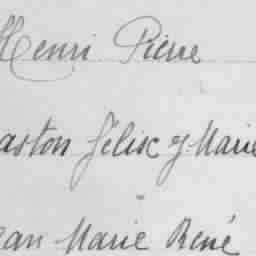 Henri Pierre
aston Felix J. Marie
ean Marie René